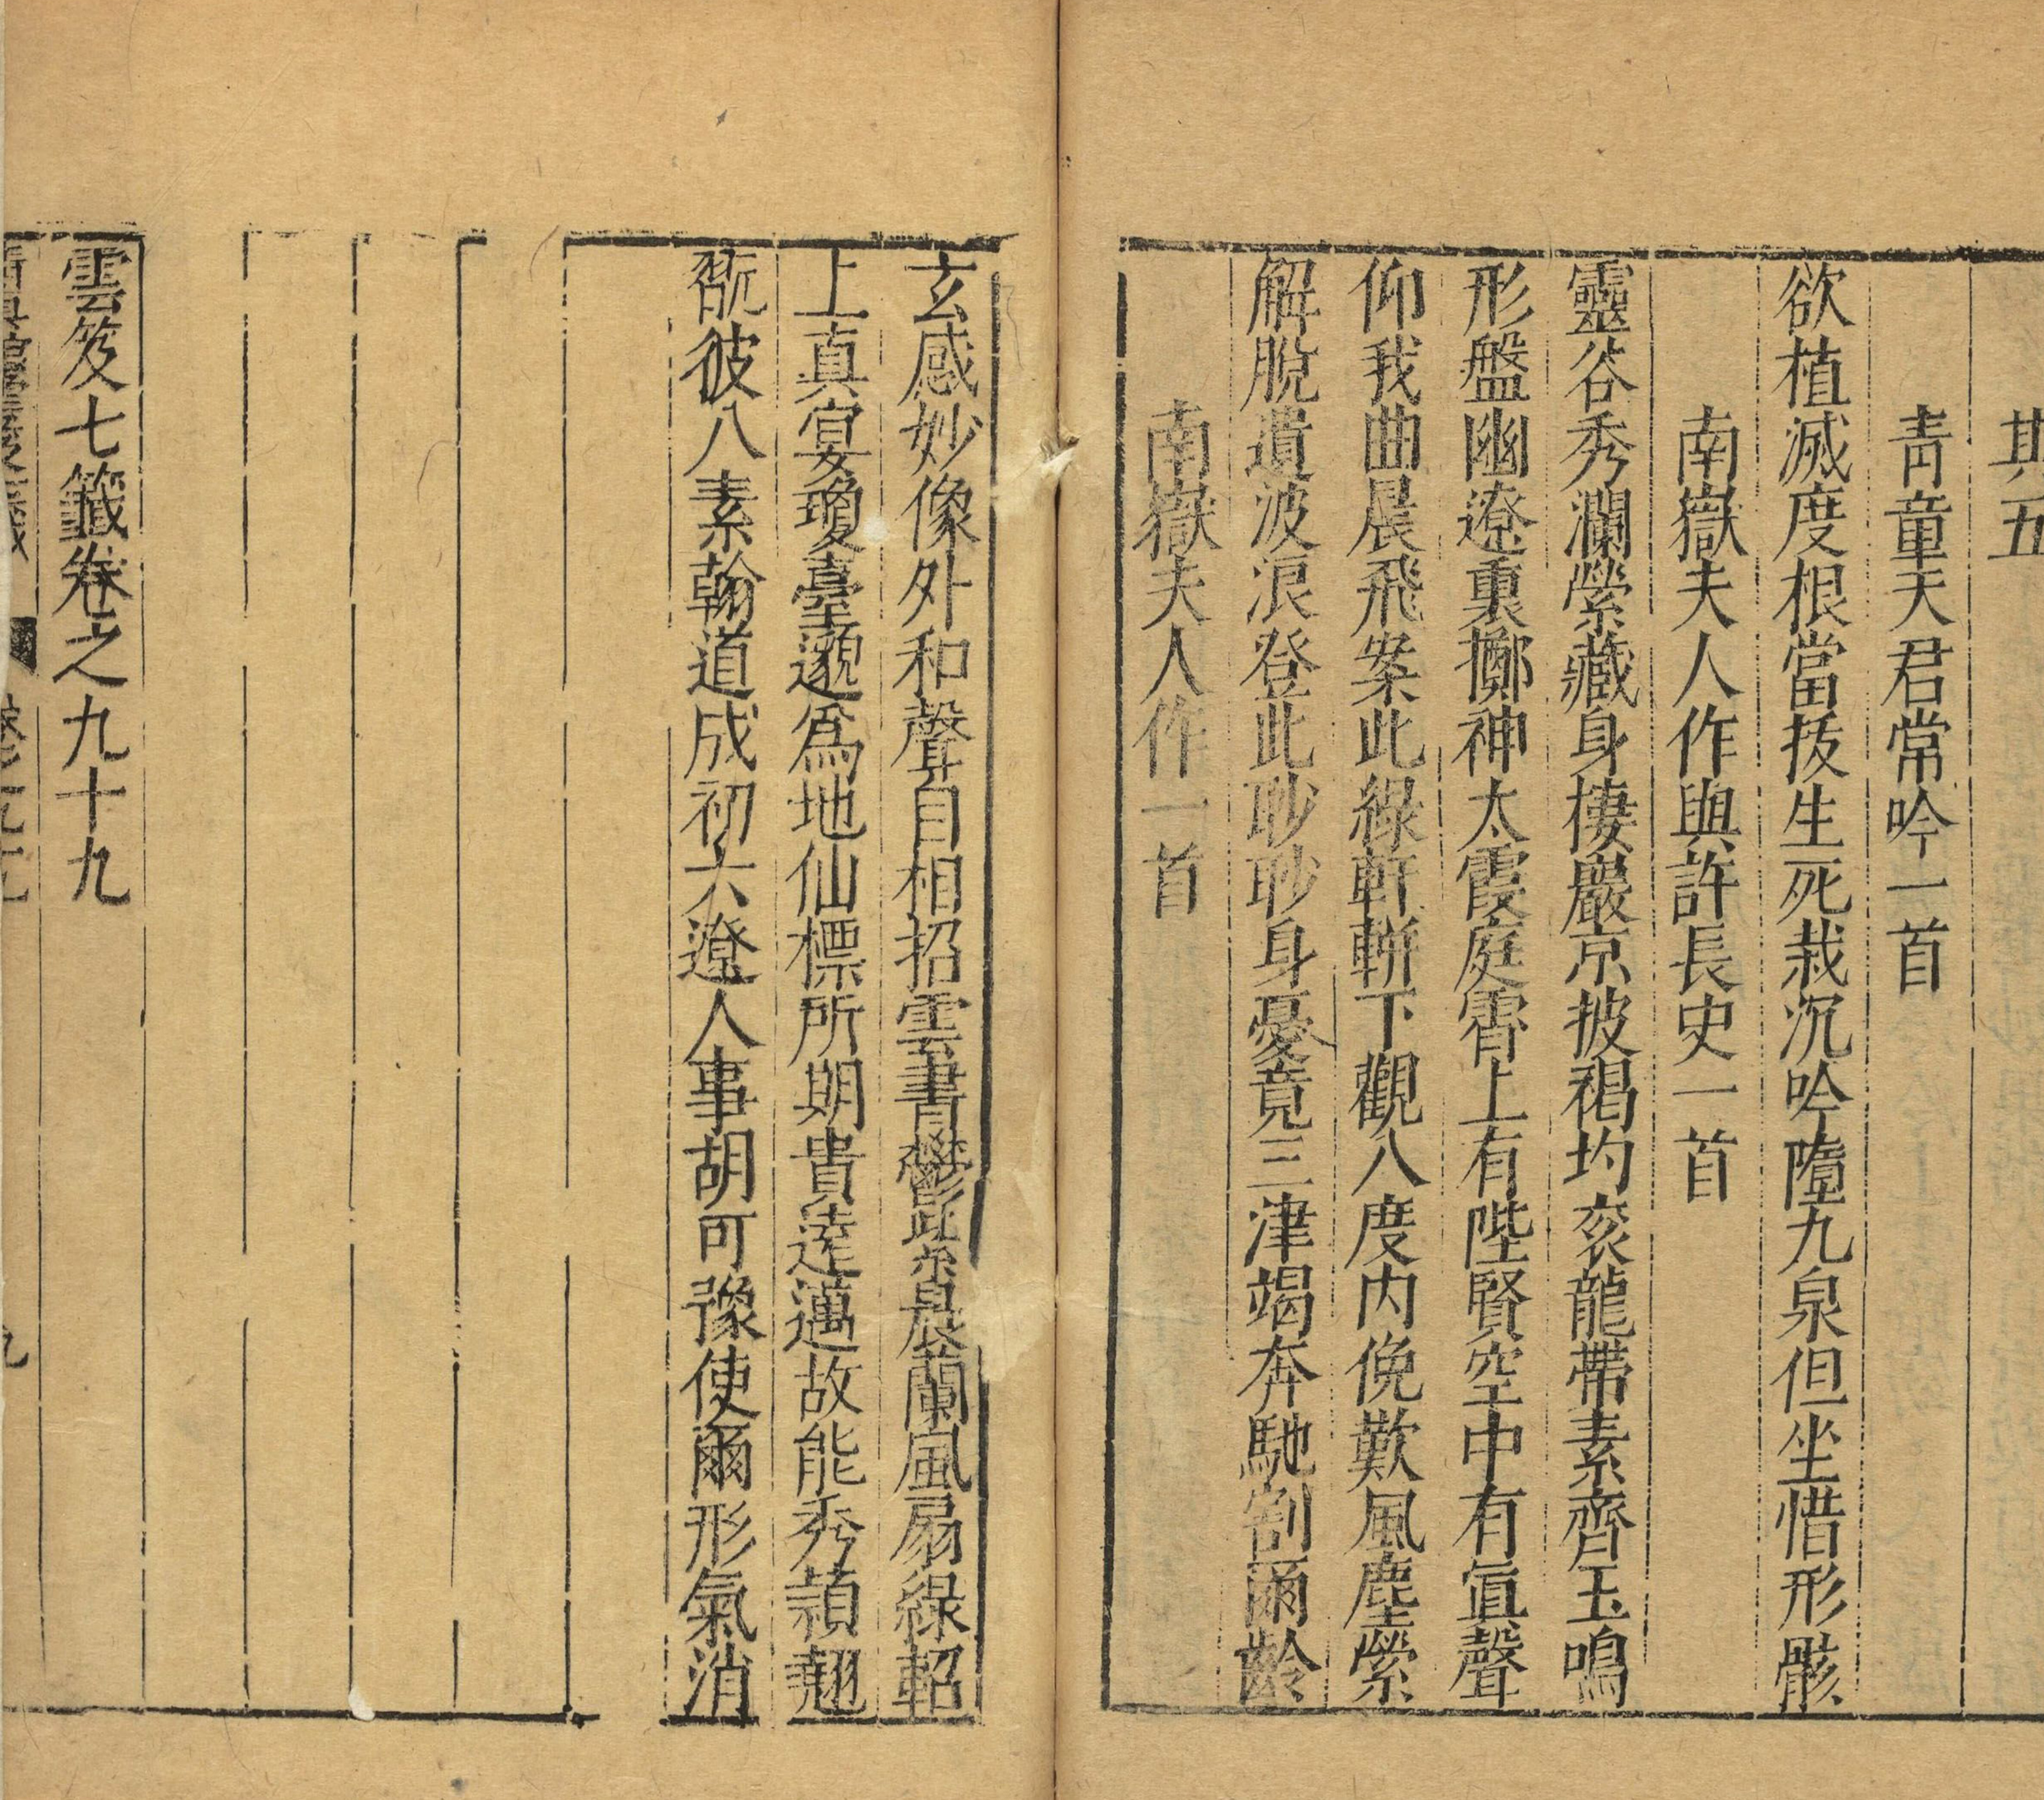 其五
青童天君常吟一首
欲植滅度根當拔生死栽沉吟墮九泉但坐惜形骸
南嶽夫人作與許長史一首
靈谷秀瀾縈藏身棲巖京披褐均衮龍帶素齊玉鳴
形盤幽遼裏擲神太霞庭霄上有陛賢空中有眞聲
仰我曲晨飛案此綠軒軿下觀八度内俛歎風塵縈
解脫遺波浪登此眇眇身憂竟三津竭奔馳割爾齡
南嶽夫人作一首
玄感妙像外和聲自相招雲書鬱此紫晨蘭風扇綠軺
上真宴瓊臺邈爲地仙標所期貴遠邁故能秀穎翹
翫彼八素翰道成初六遼人事胡可豫使爾形氣消
雲笈七籤卷之九十九